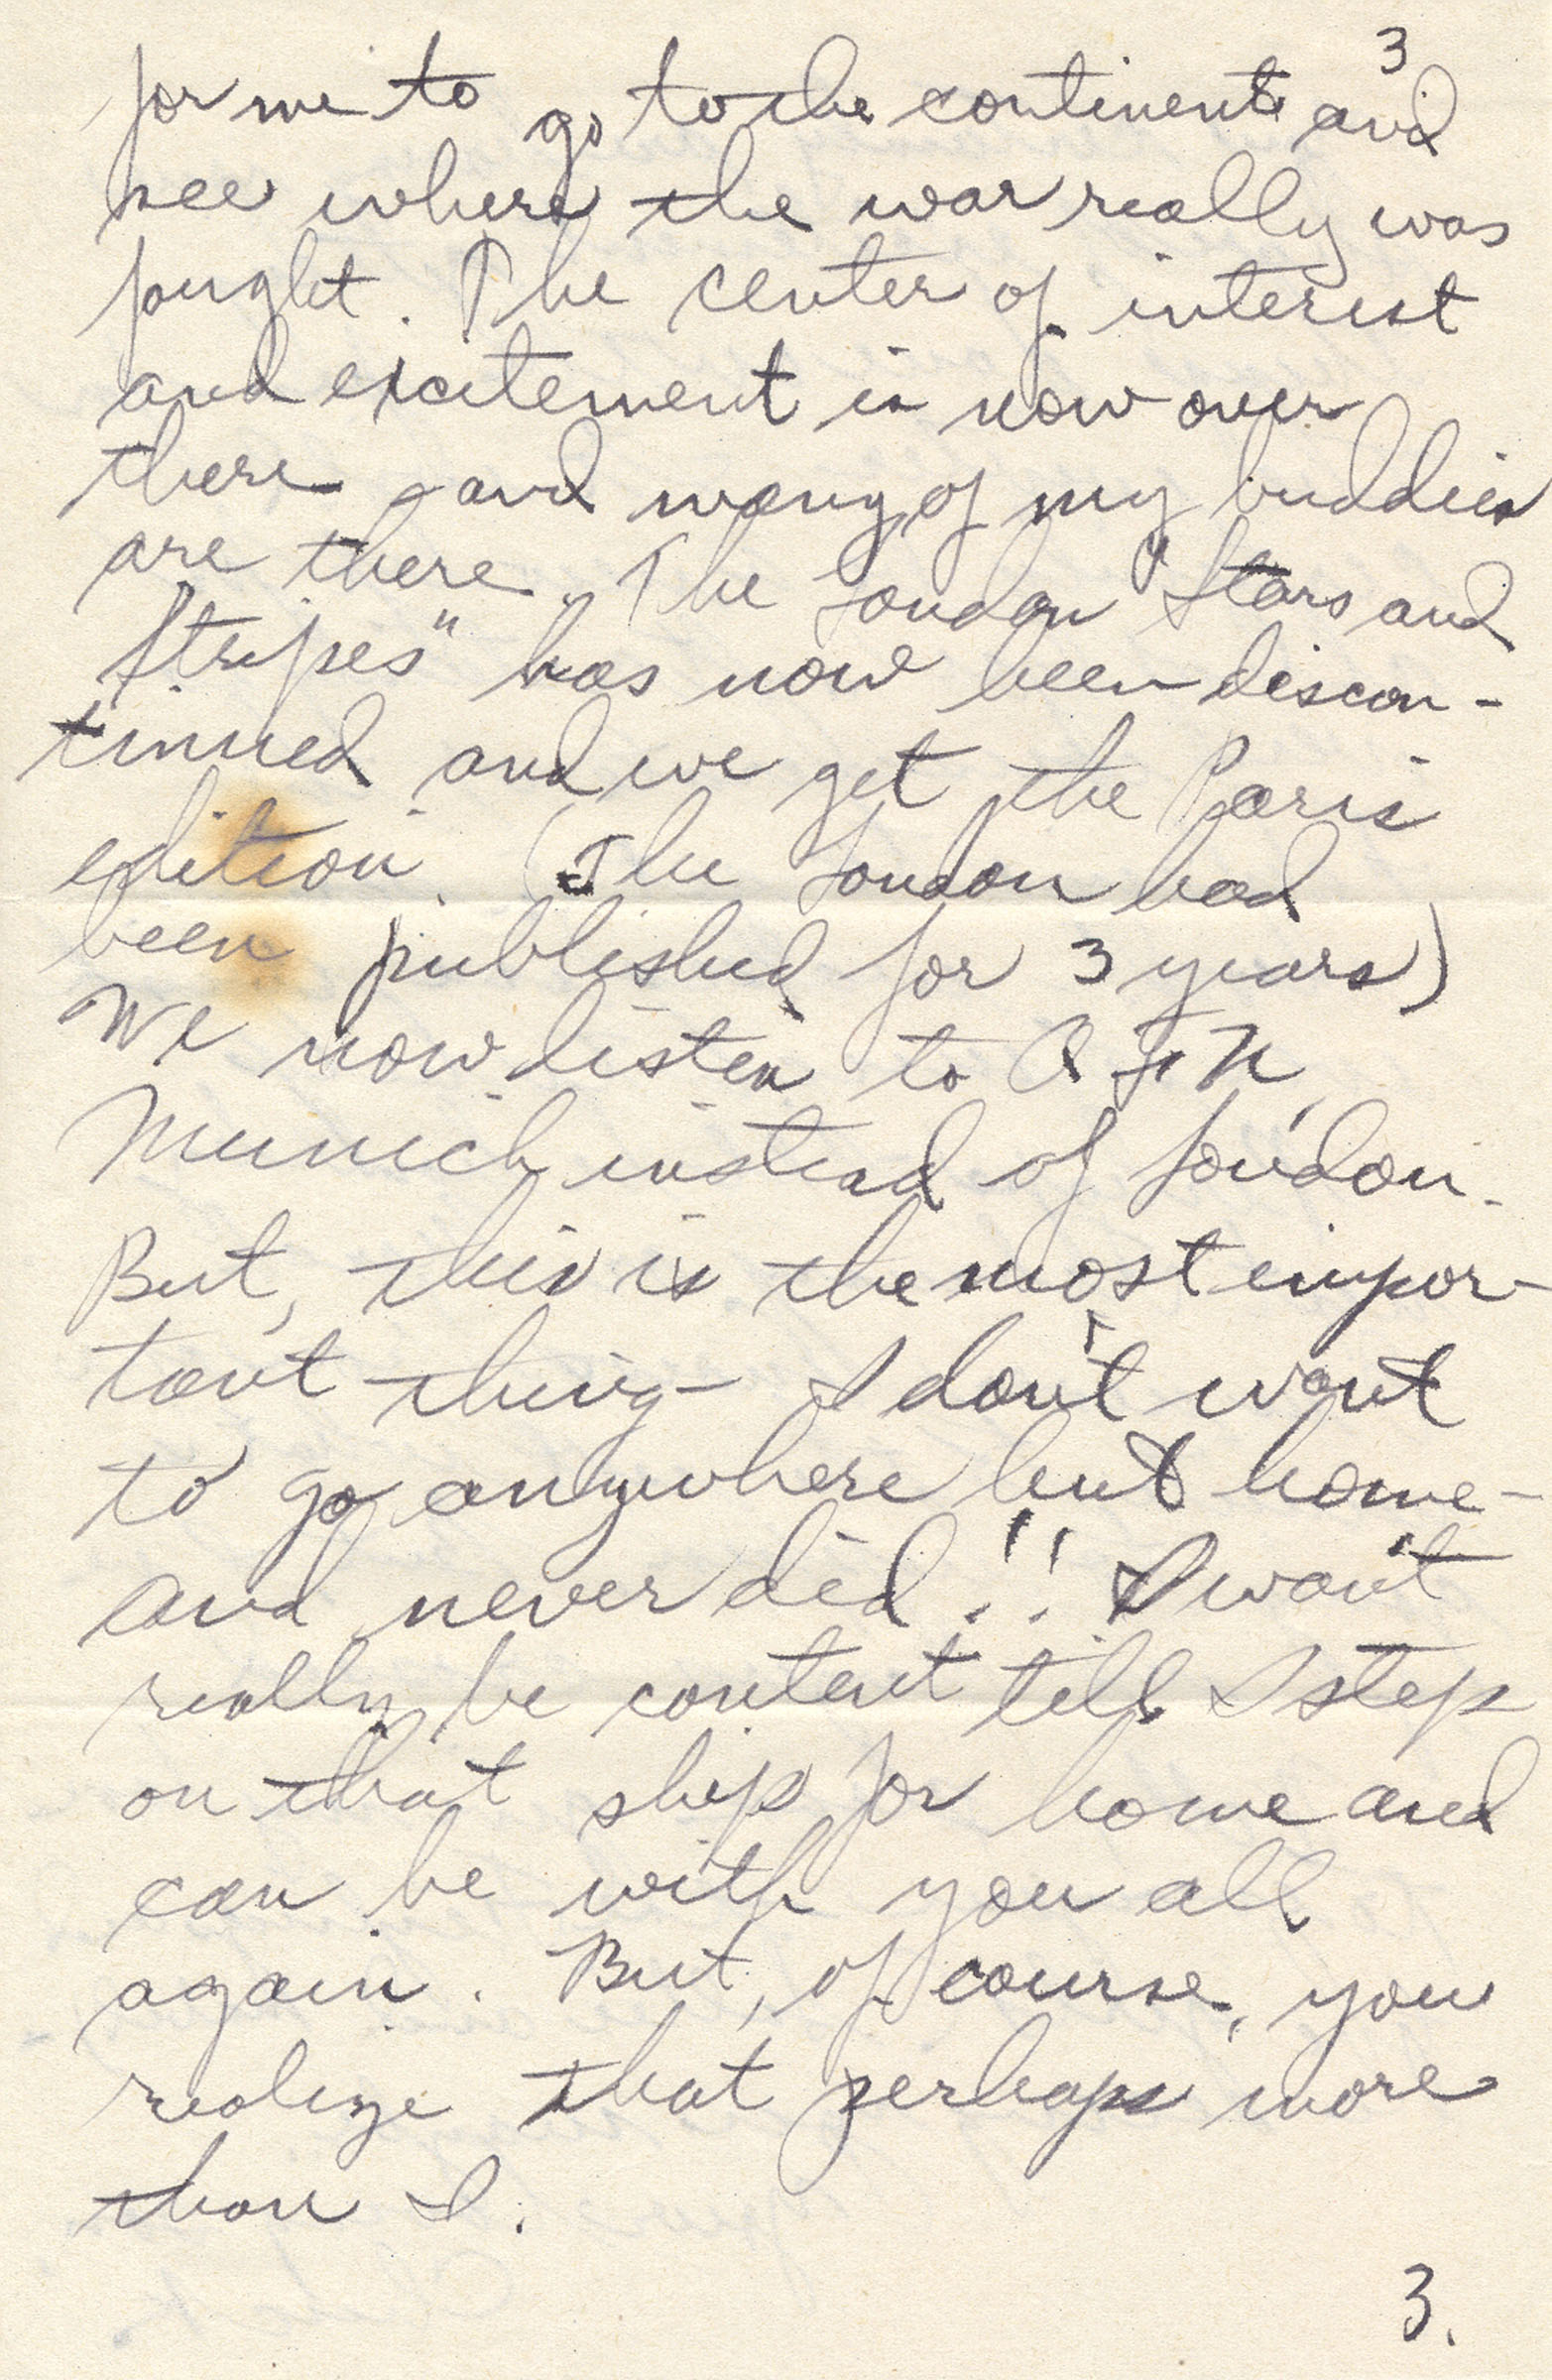 3
for me to go to the continent and
see where the war really was
fought. The center of interest
and excitement is now over
there - and many of my buddies
are there. The London "Stars and
Stripes" has now been discon-
tinued and we get the Paris
edition. (The London had
been published for 3 years)
We now listen to A F N,
Munich instead of London.
But, this is the most impor-
tant thing - I don't want
to go anywhere but home -
and never did!! I won't
really be content till I step
on that ship for home and
can be with you all
again. But, of course, you
realize that perhaps more
than I.
3.